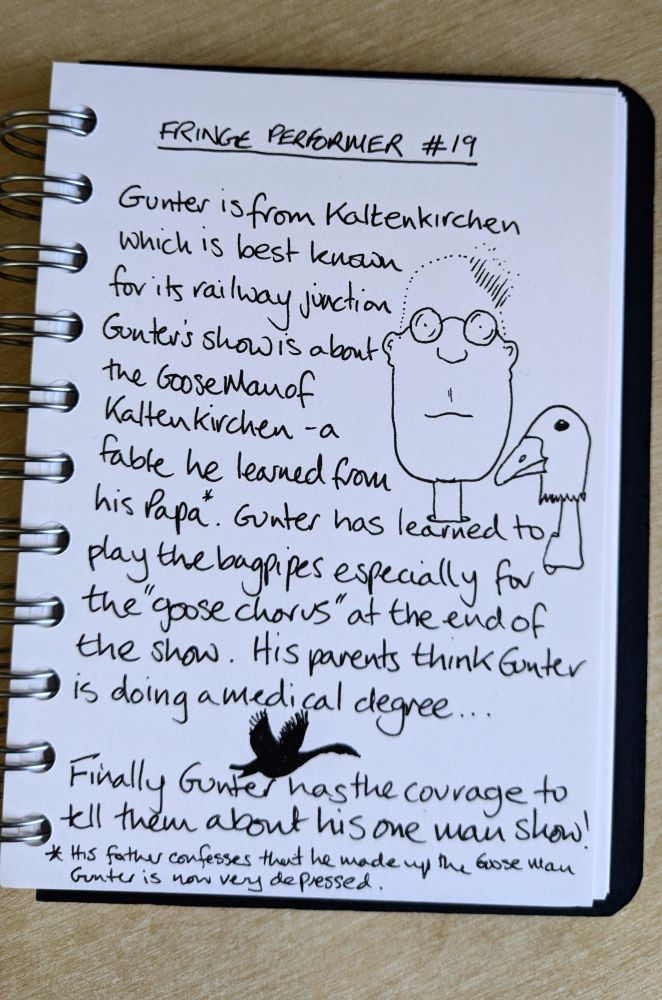 FRINGE PERFORMER #19
Gunter is from Kaltenkirchen
which is best known
for its railway junction
Gunter's show is about
the Goose Man of
Kaltenkirchen - a
fable he learned from
his Papa*. Gunter has learned to
play the bagpipes especially for
the "goose chorus" at the end of
the show. His parents think Gunter
is doing a medical degree...
Finally Gunter has the courage to
tell them about his one man show!
* His father confesses that he made up the Goose Man
Gunter is now very depressed.